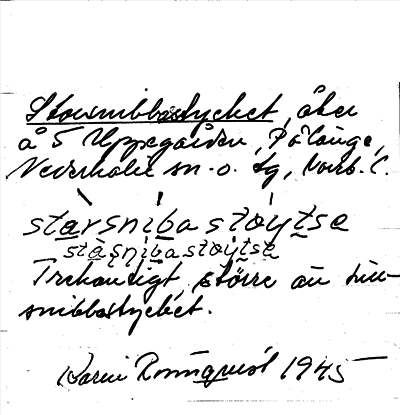 Storsnibbastycket, åker
å 5 Uppegården, Pålänge,
Nederkalix sn. o. tg, Norrb. l.
stàrsnìba støỳtsa
stàsnìba støỳtsa
Trekantigt, större än
snibbastycket.
Karin Rönnqvist 1945